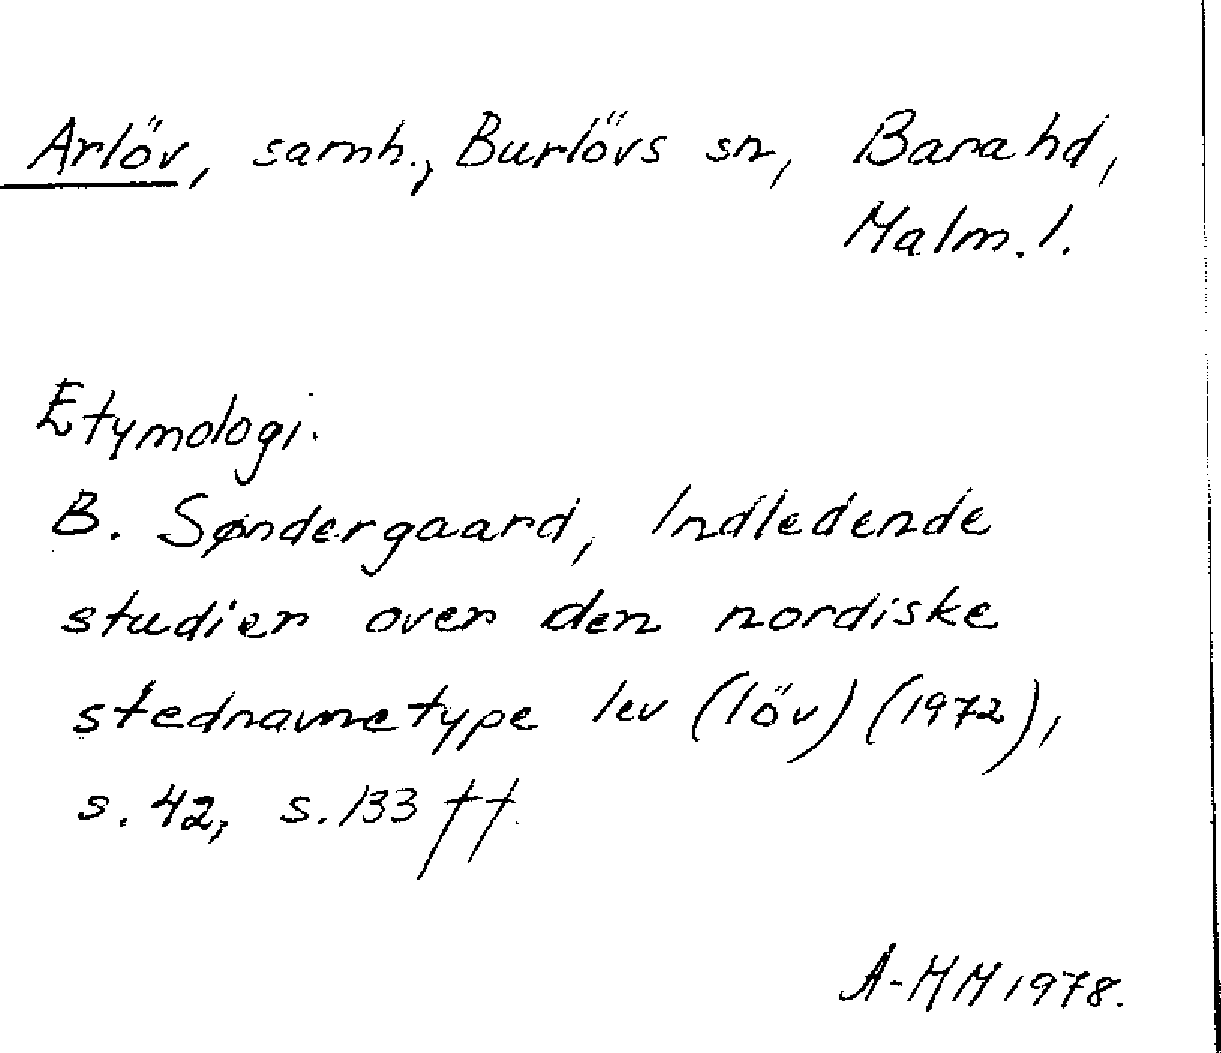 Arlöv, samh., Burlövs sn, Bara hd,
Malm. l.
Etymologi.
B. Søndergaard, Indledende
studier over den nordiske
stednavnetype lev (löv) (1972),
s. 42, s. 133 ff.
A-HM 1978.